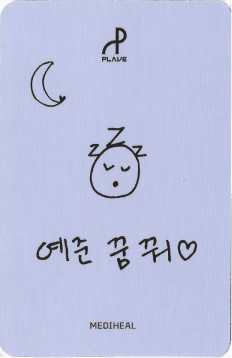 PLAVE
z Z z
예준 꿈 꿔♡
MEDIHEAL